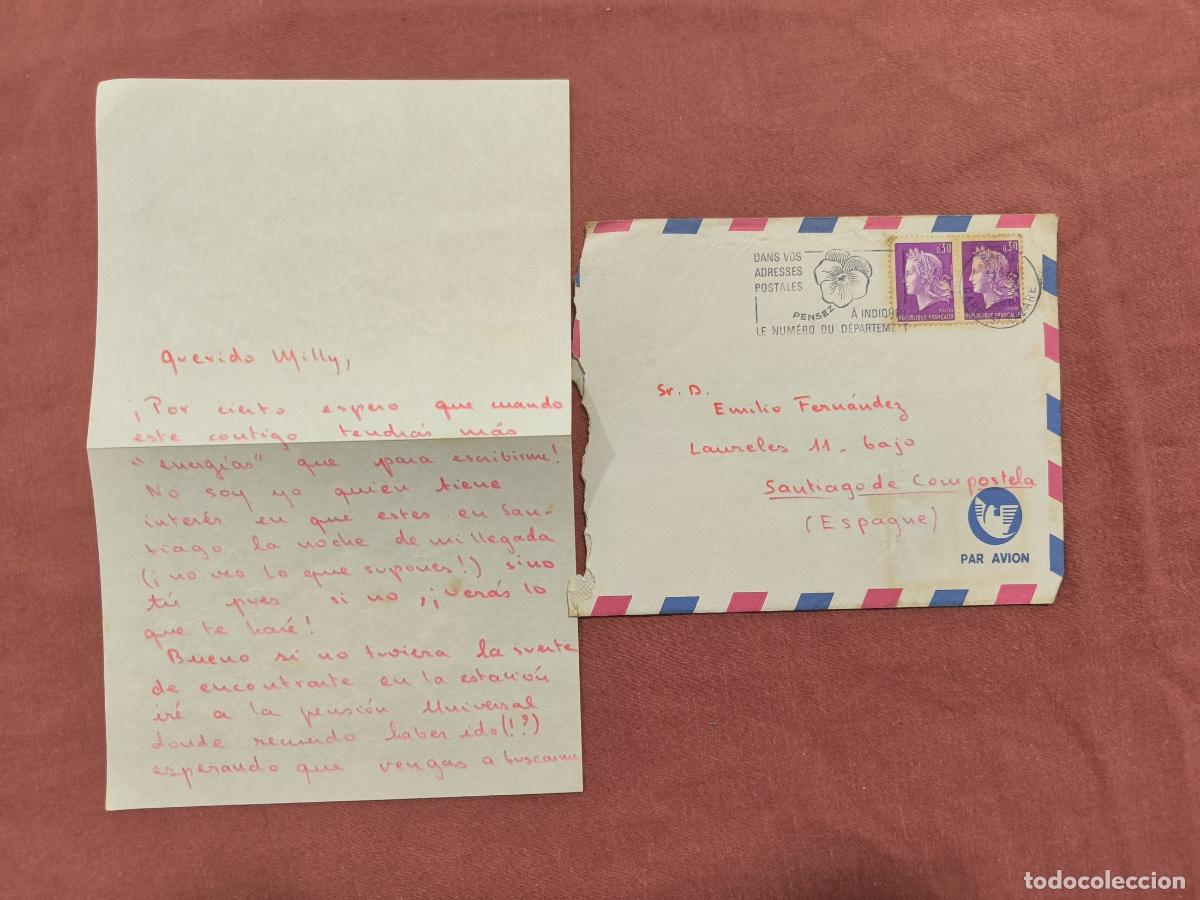 Querido Milly,
¡Por cierto espero que cuando
este contigo tendrás más
"energías" que para escribirme!
No soy yo quien tiene
interés en que estes en San-
tiago la noche de mi llegada
(¡no veo lo que supones!) sino
tú pues si no ¡¡verás lo
que te haré!
Bueno si no tuviera la suerte
de encontrarte en la estación
iré a la pensión Universal
donde recuerdo haber ido(!?)
esperando que vengas a buscarme
DANS VOS
ADRESSES
POSTALES
PENSEZ
À INDIQUER
LE NUMÉRO DU DÉPARTEMENT
0,30
POSTES
REPUBLIQUE FRANÇAISE
0,30
REPUBLIQUE FRANÇAISE
Sr. D.
Emilio Fernández
Laureles 11 - bajo
Santiago de Compostela
(Espagne)
PAR AVION
todocoleccion